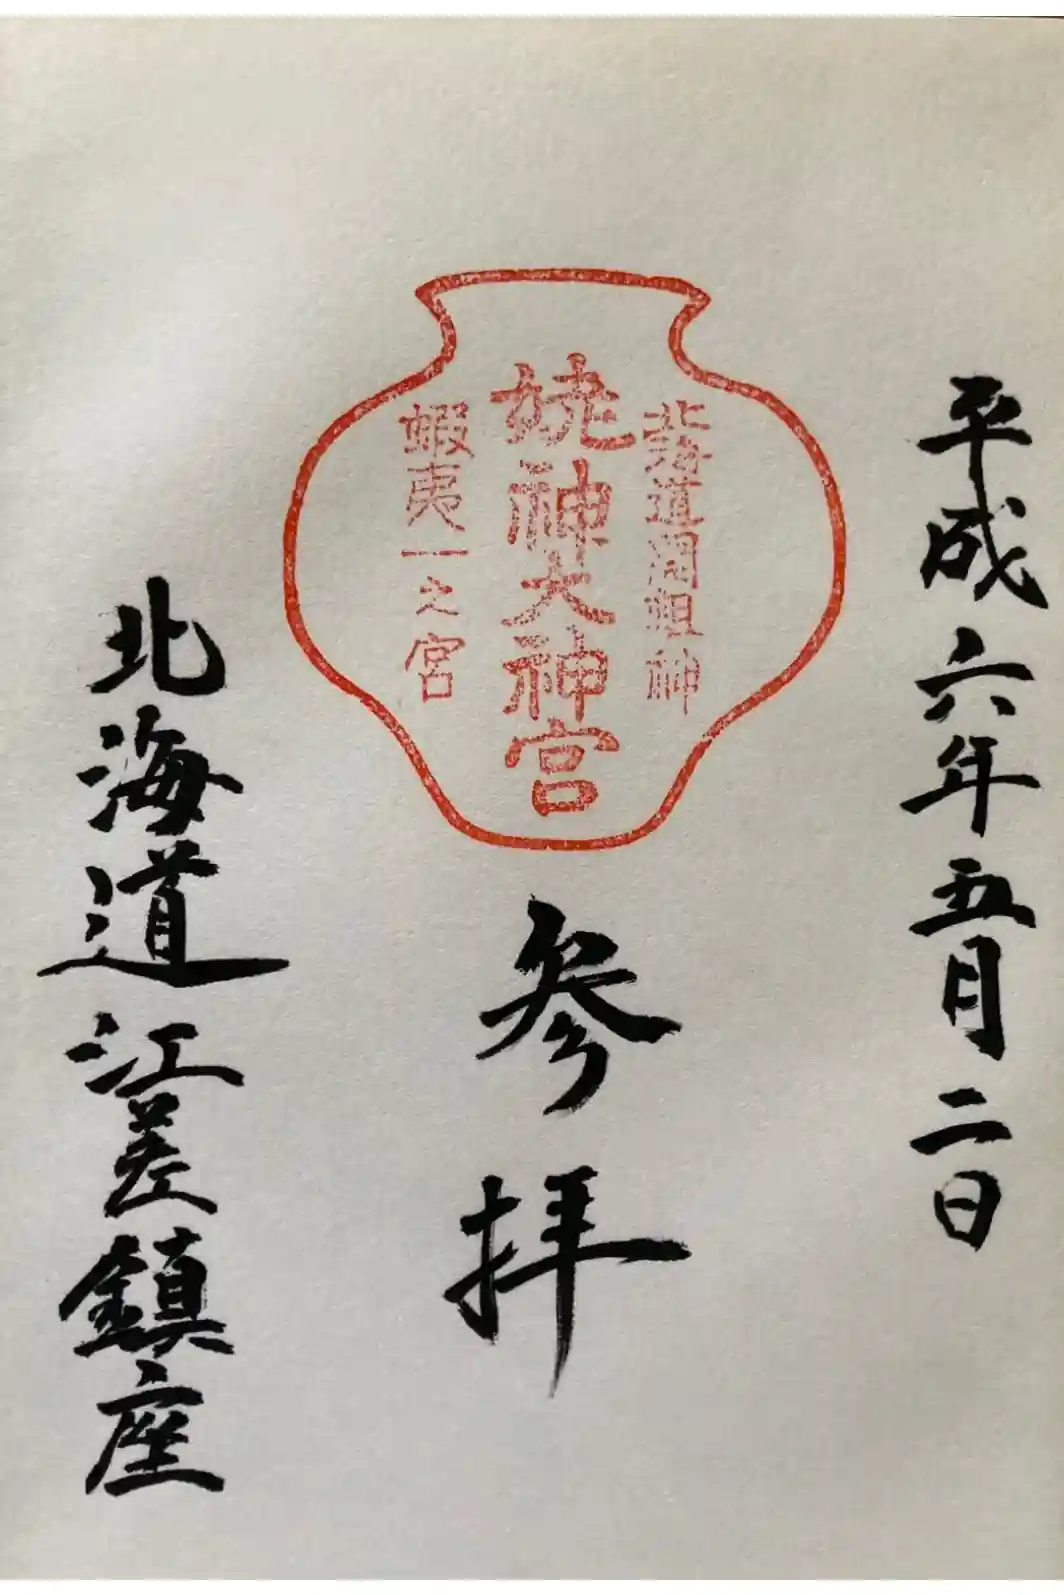 平成六年五月二日
北海道開祖神
姥神大神宮
蝦夷一之宮
参拝
北海道江差鎮座